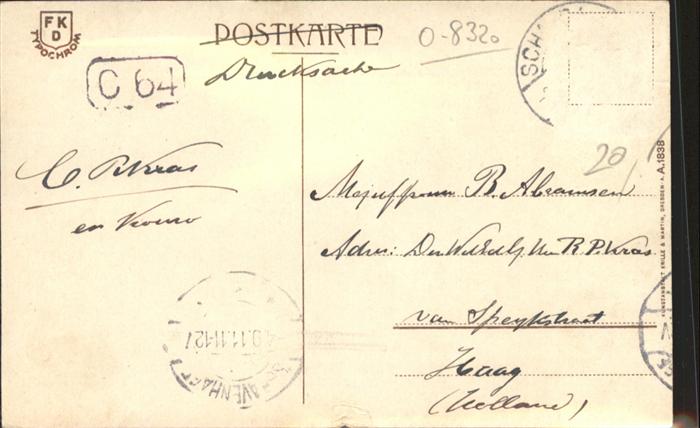 FK
D
TYPOCHROM
POSTKARTE
Drucksache
0-8320
C 64
SCH
20
C. P. Kras
en Vrouw
Mejuffrouw B. Abramsen
Adres: Den WelEdelg. Heer R. P. Kras
van Speykstraat
Haag
(Holland)
KUNSTANSTALT KRILLE & MARTIN, DRESDEN-A. A.1838
9.11.11-12V
'S GRAVENHAGE